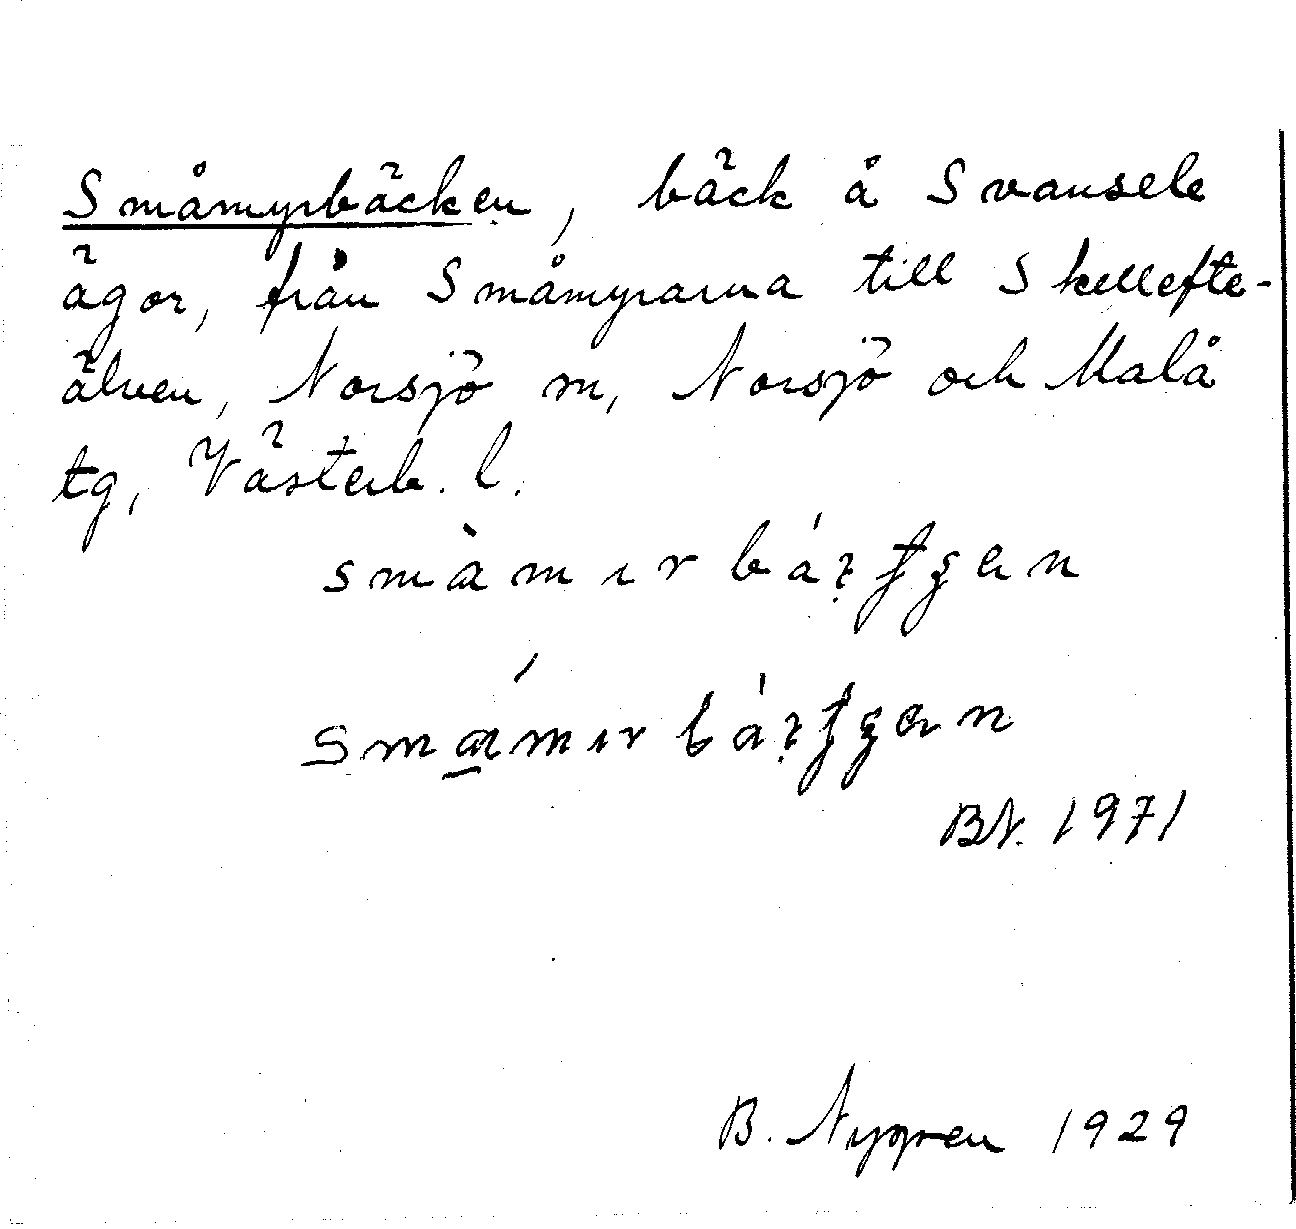 Småmyrbäcken, bäck å Svansele
ägor, från Småmyrarna till Skellefte-
älven, Norsjö m, Norsjö och Malå
tg, Västerb. l.
BN. 1971
B. Nygren 1929